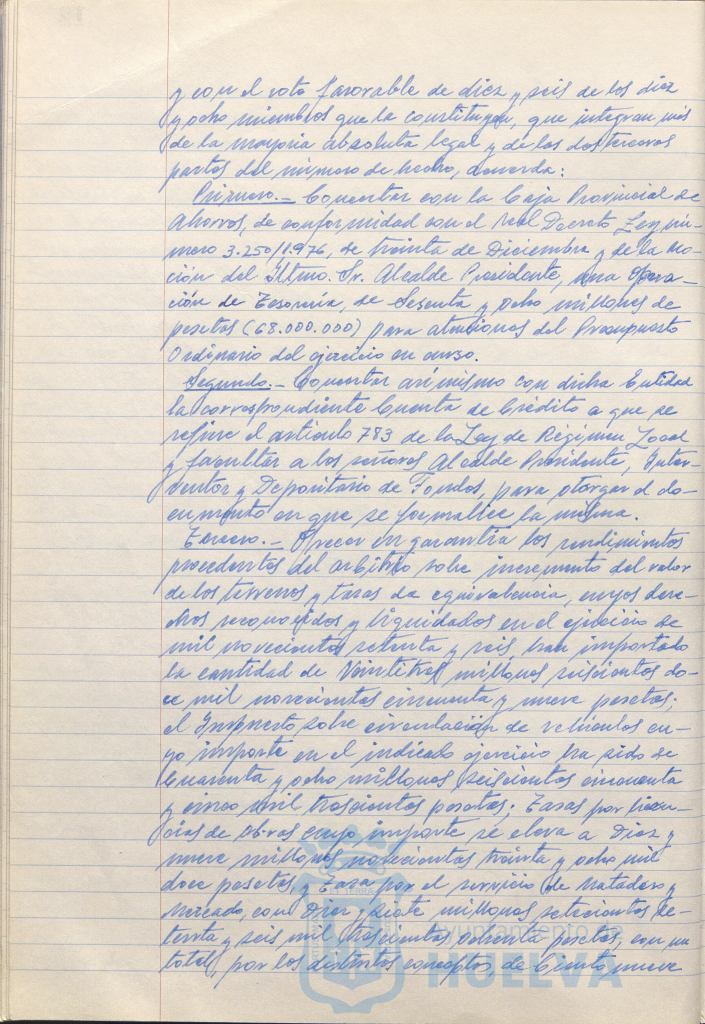 y con el voto favorable de diez y seis de los diez
y ocho miembros que la constituyen, que integran más
de la mayoria absoluta legal y de las dos terceras
partes del número de hecho, acuerda:
Primero.- Concertar con la Caja Provincial de
Ahorros, de conformidad con el Real Decreto Ley nú-
mero 3.250/1.976, de treinta de Diciembre y de la Mo-
ción del Iltmo. Sr. Alcalde Presidente, una Opera-
ción de Tesoreria, de Sesenta y ocho millones de
pesetas (68.000.000) para atenciones del Presupuesto
Ordinario del ejercicio en curso.
Segundo.- Concertar asimismo con dicha Entidad
la correspondiente Cuenta de Crédito a que se
refiere el artículo 783 de la Ley de Régimen Local
y facultar a los señores Alcalde Presidente, Inter-
ventor y Depositario de Fondos, para otorgar el do-
cumento en que se formalice la misma.
Tercero.- Ofrecer en garantia los rendimientos
procedentes del arbitrio sobre incremento del valor
de los terrenos y tasas de equivalencia, cuyos dere-
chos reconocidos y liquidados en el ejercicio de
mil novecientos setenta y seis, han importado
la cantidad de Veintitres millones seiscientos do-
ce mil novecientos cincuenta y nueve pesetas;
el Impuesto sobre circulación de vehículos cu-
yo importe en el indicado ejercicio ha sido de
Cuarenta y ocho millones seiscientos cincuenta
y cinco mil trescientos pesetas; Tasas por licen-
cias de obras cuyo importe se eleva a Diez y
nueve millones novecientos treinta y ocho mil
doce pesetas, y Tasa por el servicio de Matadero y
Mercado, con Diez y siete millones setecientos se-
tenta y seis mil trescientas ochenta pesetas, con un
total, por los distintos conceptos, de Ciento nueve
Ayuntamiento de
HUELVA